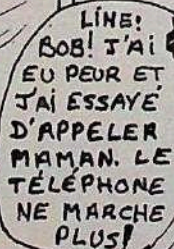 LINE:
BOB! J'AI
EU PEUR ET
J'AI ESSAYÉ
D'APPELER
MAMAN. LE
TÉLÉPHONE
NE MARCHE
PLUS!